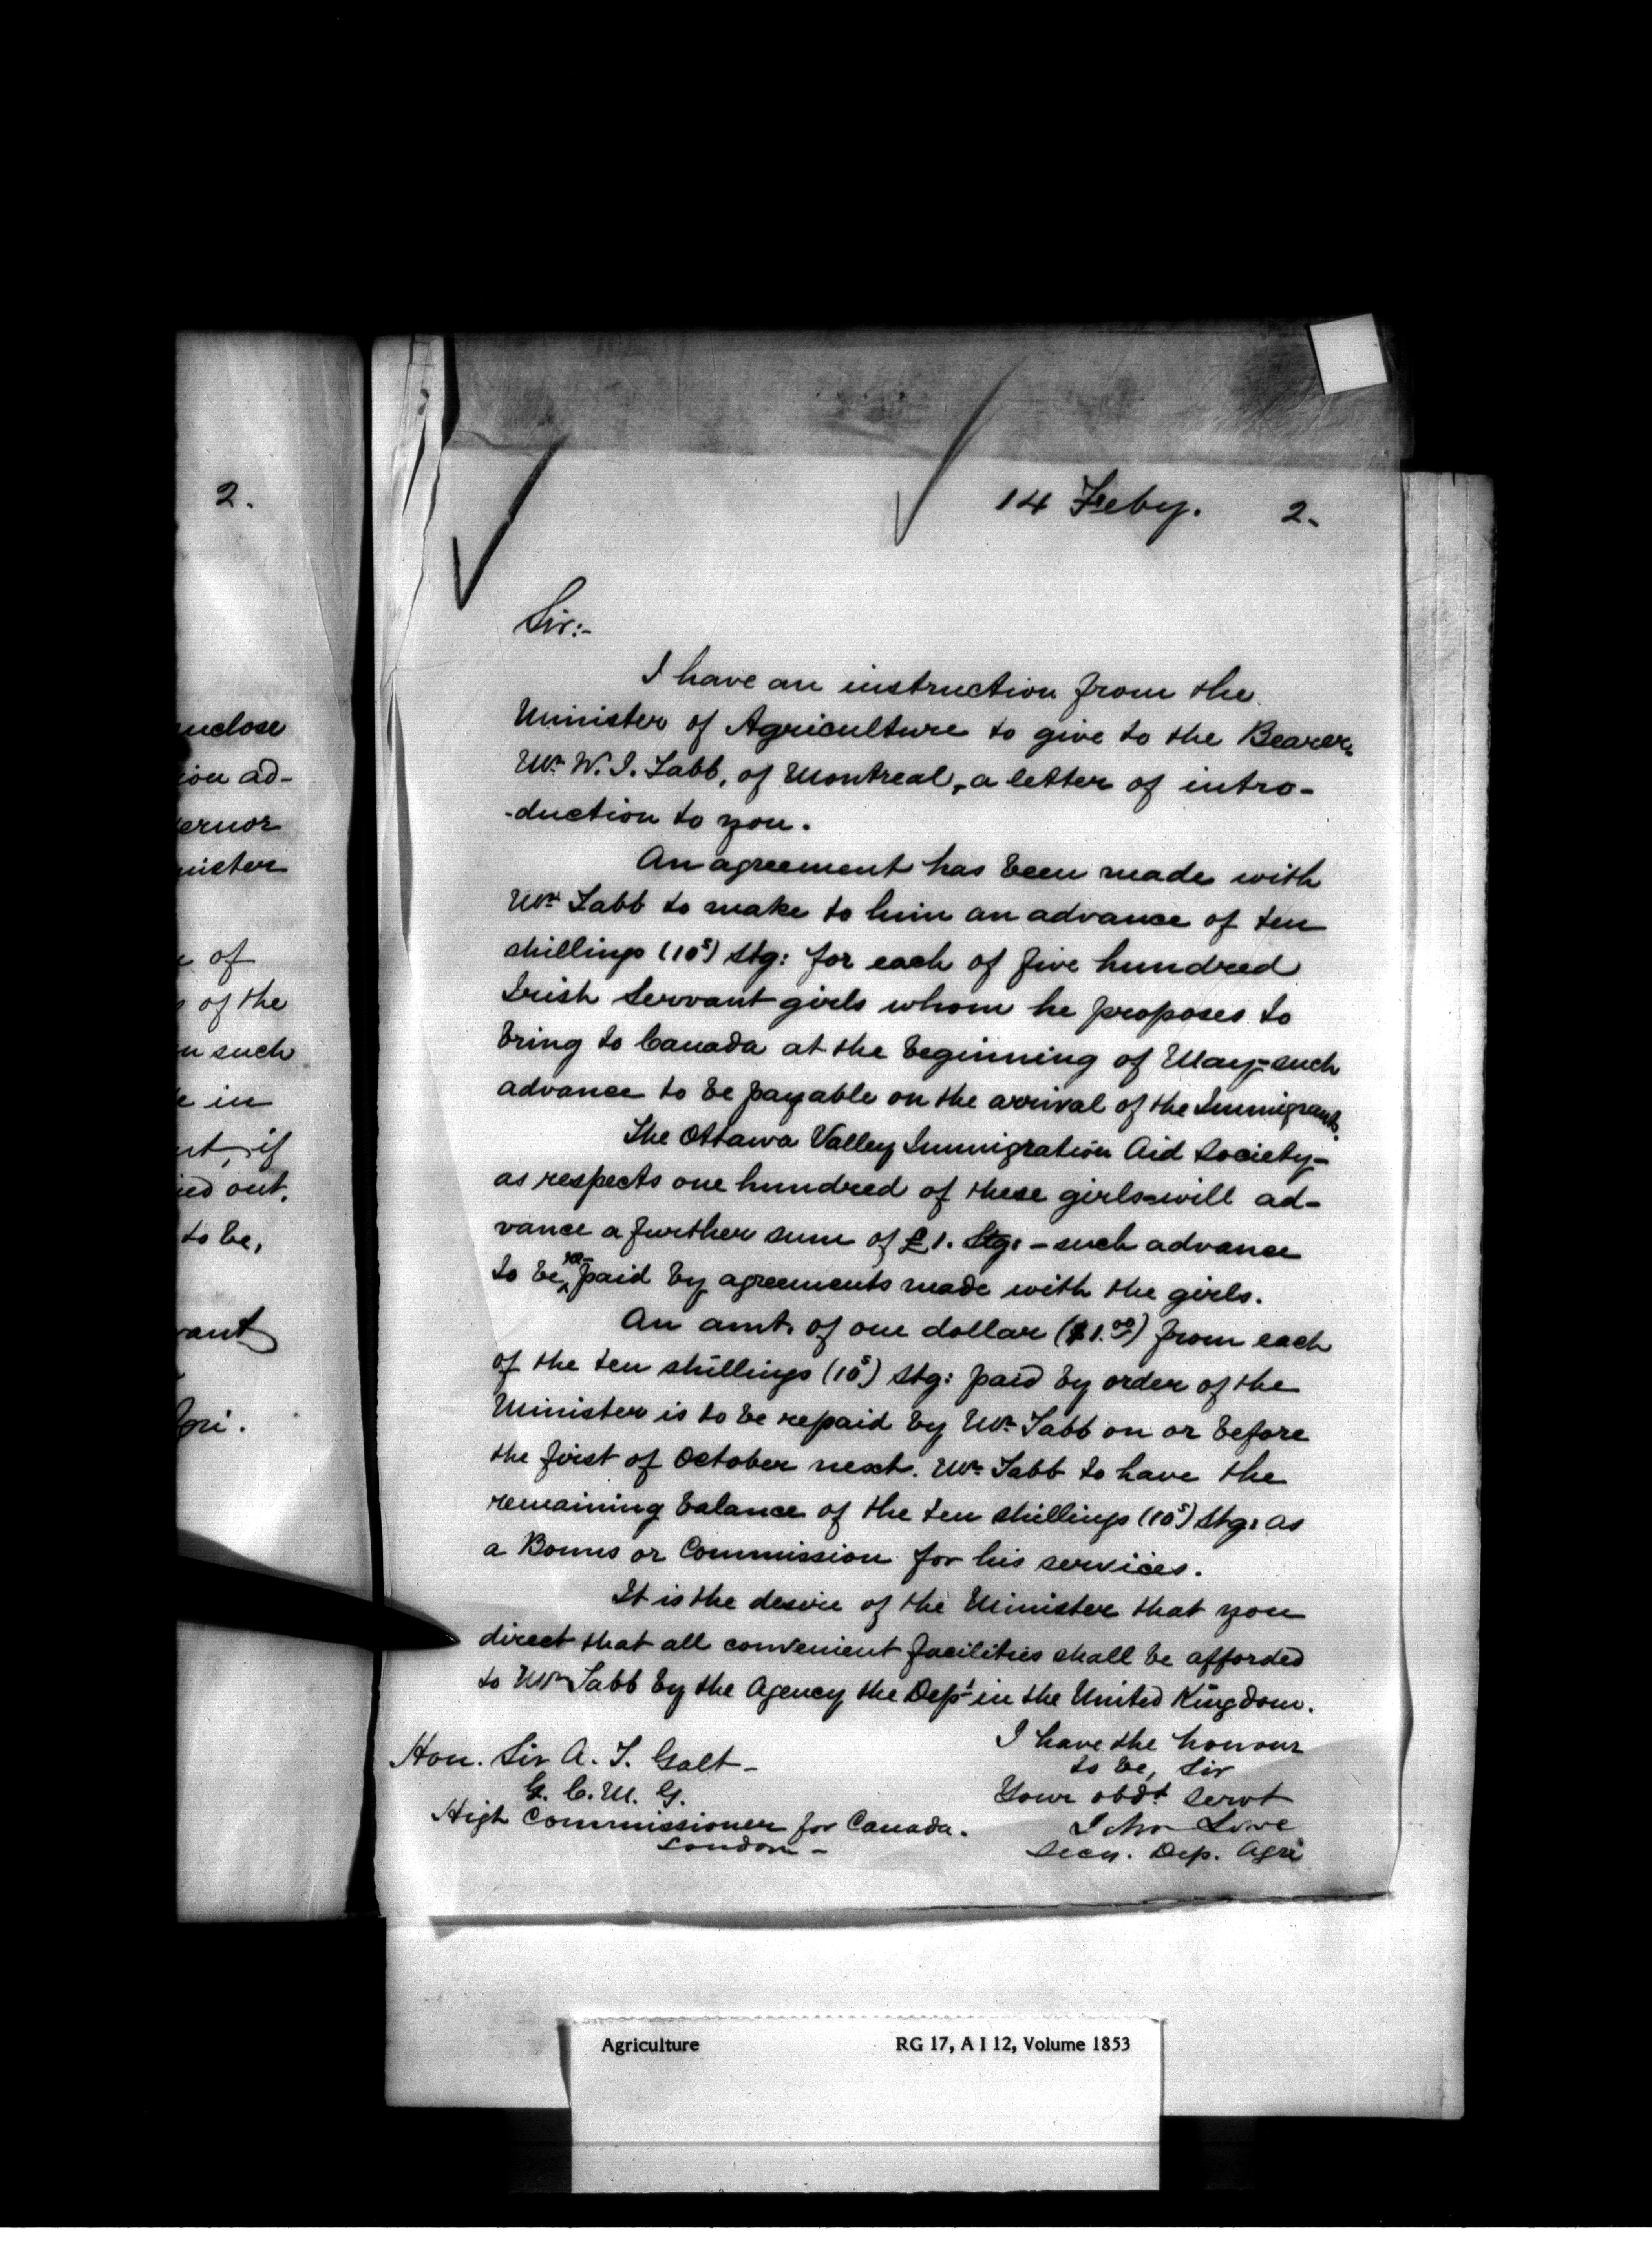 2.
enclose
ion ad-
ernor
nister
e of
s of the
n such
e in
nt, if
ied out.
to be,
vant
Agri.
14 Feby. 2.
Sir:-
I have an instruction from the
Minister of Agriculture to give to the Bearer,
Mr. W. J. Tabb, of Montreal, a letter of intro-
-duction to you.
An agreement has been made with
Mr. Tabb to make to him an advance of ten
shillings (10s) Stg: for each of five hundred
Irish Servant girls whom he proposes to
bring to Canada at the beginning of May-such
advance to be payable on the arrival of the Immigrants.
The Ottawa Valley Immigration Aid Society-
as respects one hundred of these girls-will ad-
vance a further sum of £1. Stg: - such advance
to be re-paid by agreements made with the girls.
An amt. of one dollar ($1.00) from each
of the ten shillings (10s) Stg: paid by order of the
Minister is to be repaid by Mr. Tabb on or before
the first of October next. Mr. Tabb to have the
remaining balance of the ten shillings (10s) Stg: as
a Bonus or Commission for his services.
It is the desire of the Minister that you
direct that all convenient facilities shall be afforded
to Mr. Tabb by the Agency the Dept in the United Kingdom.
I have the honour
to be, Sir
Your obdt servt
John Lowe
Secy. Dep. Agri
Hon. Sir A. T. Galt-
G. C. M. G.
High Commissioner for Canada.
London-
Agriculture RG 17, A I 12, Volume 1853